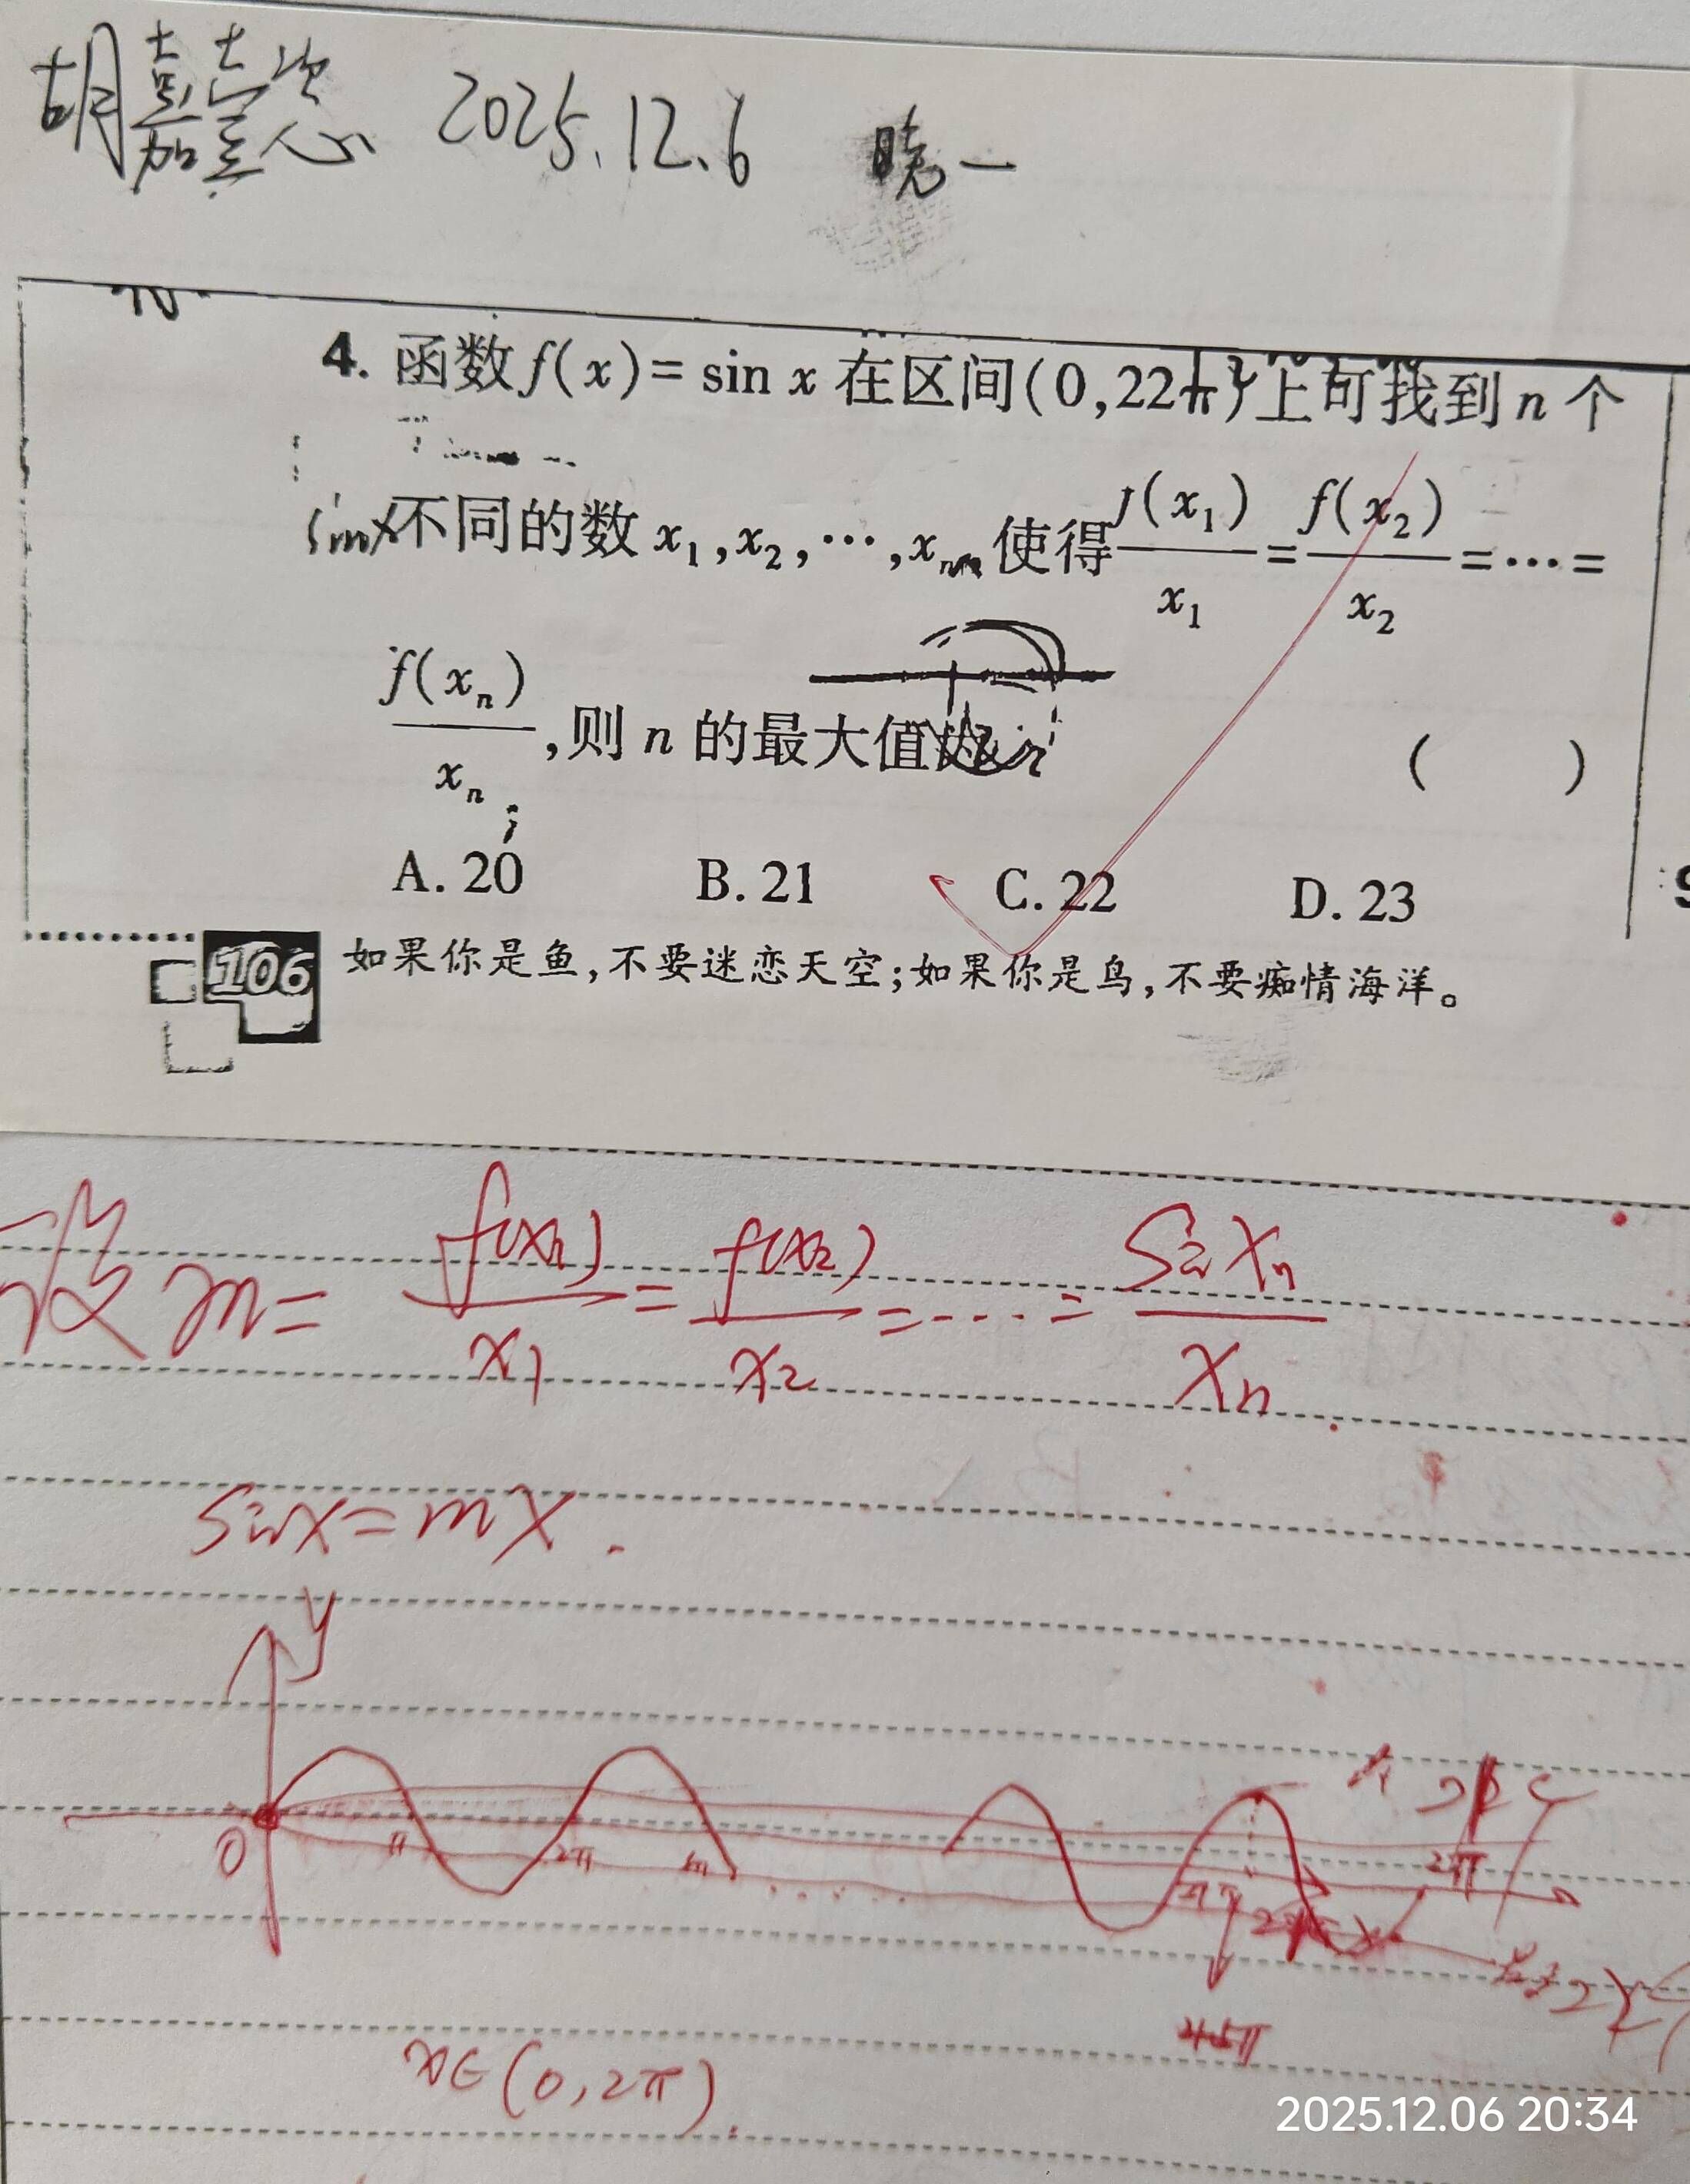 胡嘉懿 2025.12.6 晓一
4. 函数f(x)=sin x 在区间(0,22π)上可找到n个
不同的数x₁,x₂,…,xₙ,使得f(x₁)/x₁=f(x₂)/x₂=…=
f(xₙ)/xₙ,则n的最大值为 ( )
A. 20 B. 21 C. 22 D. 23
106 如果你是鱼,不要迷恋天空;如果你是鸟,不要痴情海洋。
设 m= f(x₁)/x₁ = f(x₂)/x₂ =…= Sin xₙ/xₙ
Sinx=mx.
y
0 π 2π
2π
x∈(0,2π).
2025.12.06 20:34